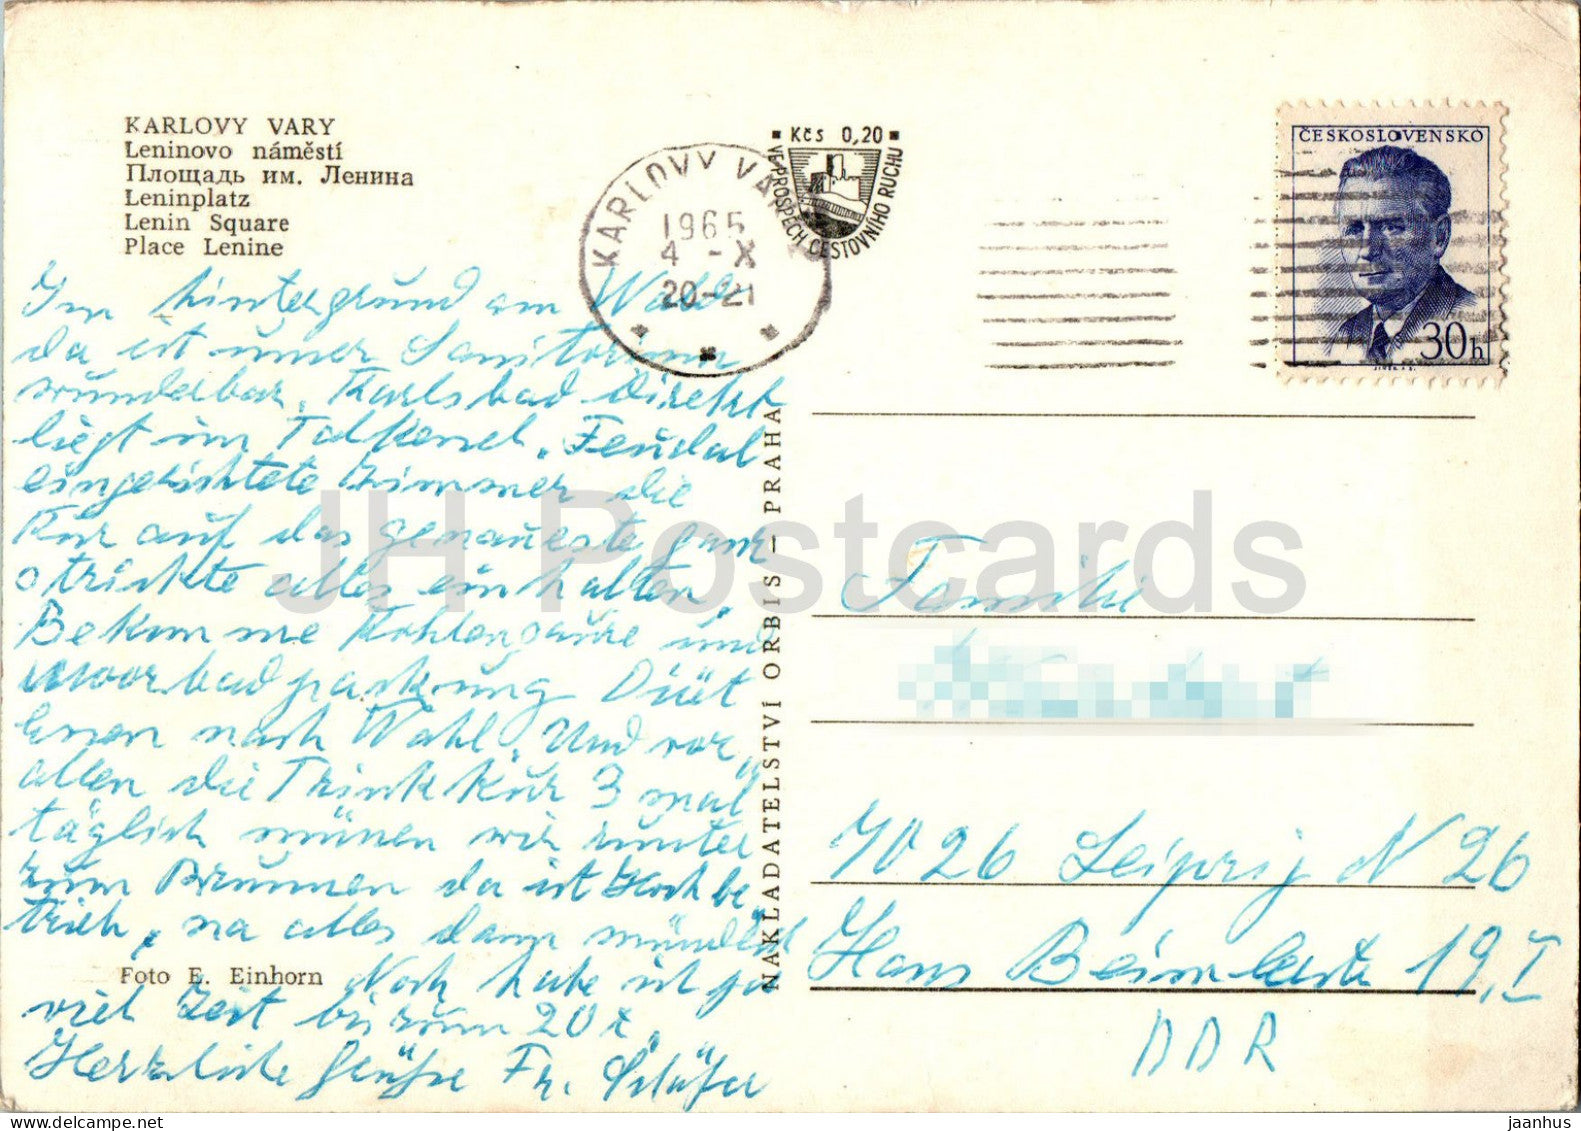 KARLOVY VARY
Leninovo náměstí
Площадь им. Ленина
Leninplatz
Lenin Square
Place Lenine
KARLOVY VARY
1965
4 - X
20-21
Kčs 0,20
VE PROSPĚCH CESTOVNÍHO RUCHU
ČESKOSLOVENSKO
30h
Im hintergrund am Wald
da ist unser Sanitorium
wunderbar, Karlsbad direkt
liegt im Talkessel. Feudal
eingerichtete Zimmer die
Kur auf das genaueste ganz
strickte alles einhalten,
Bekomme Kohlensäure und
Moorbadpackung Diät
Essen nach Wahl. Und vor
allen die Trinkkur 3 mal
täglich müssen wir runter
zum Brunnen da ist Hochbe
trieb, na alles dann mündlich
Noch habe ich ja
viel Zeit bis zum 20 X.
Herzliche Grüße Fr. Schäfer
Foto E. Einhorn
NAKLADATELSTVÍ ORBIS — PRAHA
Familie
7026 Leipzig N 26
Hans Beimlerstr 19, I
DDR
JH Postcards
delcampe.net
jaanhus